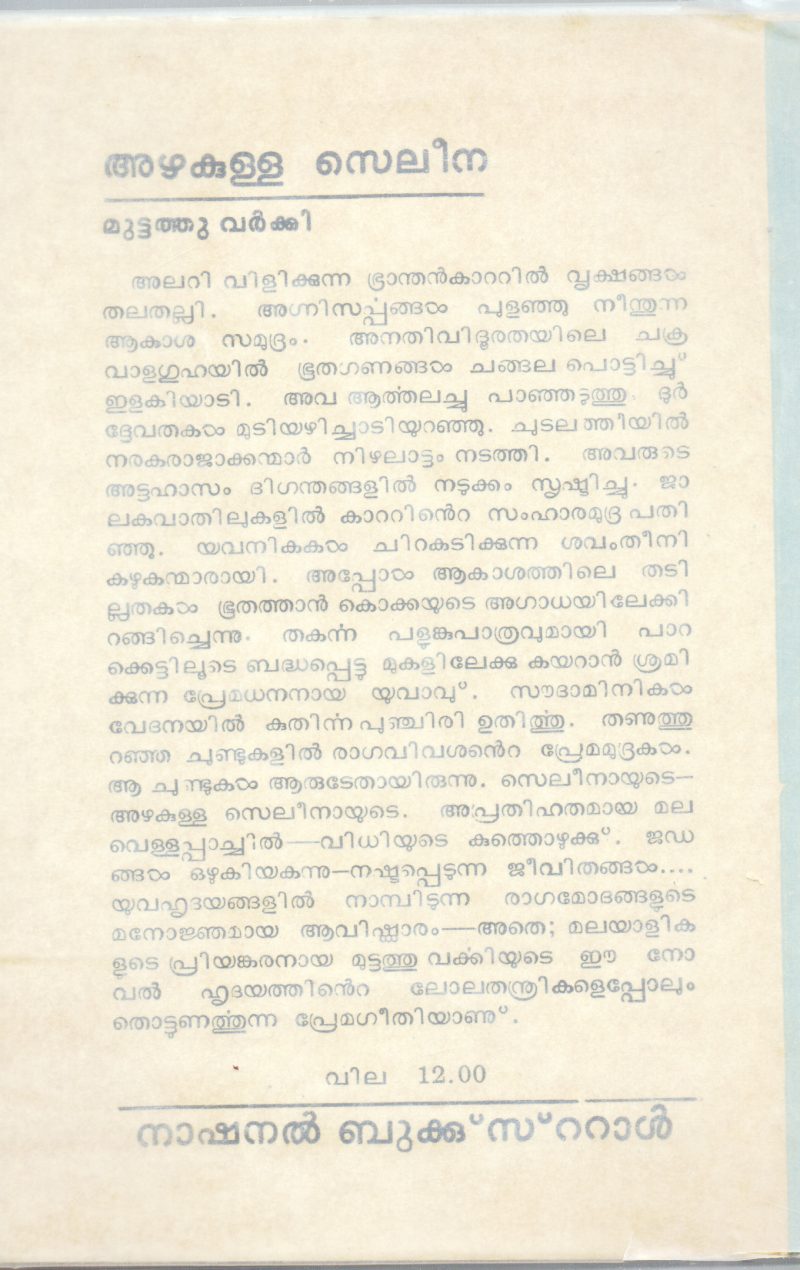 അഴകുള്ള സെലീന
മുട്ടത്തു വർക്കി
അലറി വിളിക്കുന്ന ഭ്രാന്തൻകാററിൽ വൃക്ഷങ്ങൾ
തലതല്ലി. അഗ്നിസൎപ്പങ്ങൾ പുളഞ്ഞു നീന്തുന്ന
ആകാശ സമുദ്രം. അനതിവിദൂരതയിലെ ചക്ര
വാളഗുഹയിൽ ഭൂതഗണങ്ങൾ ചങ്ങല പൊട്ടിച്ചു്
ഇളകിയാടി. അവ ആൎത്തലച്ചു പാഞ്ഞടുത്തു. ദുർ
ദ്ദേവതകൾ മുടിയഴിച്ചാടിയുറഞ്ഞു. ചുടലത്തീയിൽ
നരകരാജാക്കന്മാർ നിഴലാട്ടം നടത്തി. അവരുടെ
അട്ടഹാസം ദിഗന്തങ്ങളിൽ നടുക്കം സൃഷ്ടിച്ചു. ജാ
ലകവാതിലുകളിൽ കാററിൻെറ സംഹാരമുദ്ര പതി
ഞ്ഞു. യവനികകൾ ചിറകടിക്കുന്ന ശവംതീനി
കഴുകന്മാരായി. അപ്പോൾ ആകാശത്തിലെ തടി
ല്ലതകൾ ഭൂതത്താൻ കൊക്കയുടെ അഗാധയിലേക്കി
റങ്ങിച്ചെന്നു. തകൎന്ന പളുങ്കുപാത്രവുമായി പാറ
ക്കെട്ടിലൂടെ ബദ്ധപ്പെട്ടു മുകളിലേക്കു കയറാൻ ശ്രമി
ക്കുന്ന പ്രേമധനനായ യുവാവു്. സൗദാമിനികൾ
വേദനയിൽ കുതിൎന്ന പുഞ്ചിരി ഉതിൎത്തു. തണുത്തു
റഞ്ഞ ചുണ്ടുകളിൽ രാഗവിവശൻെറ പ്രേമമുദ്രകൾ.
ആ ചുണ്ടുകൾ ആരുടേതായിരുന്നു. സെലീനായുടെ—
അഴകുള്ള സെലീനായുടെ. അപ്രതിഹതമായ മല
വെള്ളപ്പാച്ചിൽ—വിധിയുടെ കുത്തൊഴുക്കു്. ജഡ
ങ്ങൾ ഒഴുകിയകന്നു—നഷ്ടപ്പെടുന്ന ജീവിതങ്ങൾ....
യുവഹൃദയങ്ങളിൽ നാമ്പിടുന്ന രാഗമോദങ്ങളുടെ
മനോജ്ഞമായ ആവിഷ്ക്കാരം—അതെ; മലയാളിക
ളുടെ പ്രിയങ്കരനായ മുട്ടത്തു വൎക്കിയുടെ ഈ നോ
വൽ ഹൃദയത്തിൻെറ ലോലതന്ത്രികളെപ്പോലും
തൊട്ടുണൎത്തുന്ന പ്രേമഗീതിയാണു്.
വില 12.00
നാഷനൽ ബുക്കു്സു്ററാൾ